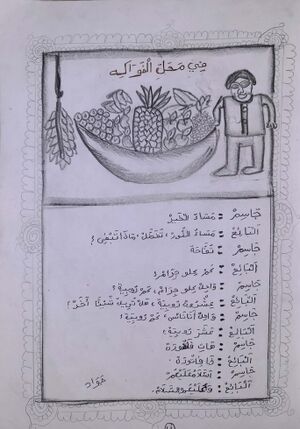 في محل الفواكه
جاسم : مساء الخير
البائع : مساء النور، تفضل، ماذا تبغى؟
جاسم : تفاحة
البائع : كم كيلو جرام؟
جاسم : واحد كيلو جرام، كم روبية؟
البائع : عشرون روبية، هل تريد شيئا آخر؟
جاسم : واحد أناناس، كم روبية؟
البائع : عشر روبية
جاسم : هات فاتورة
البائع : ذا فاتورة
جاسم : السلام عليكم
البائع : وعليكم السلام
جواد